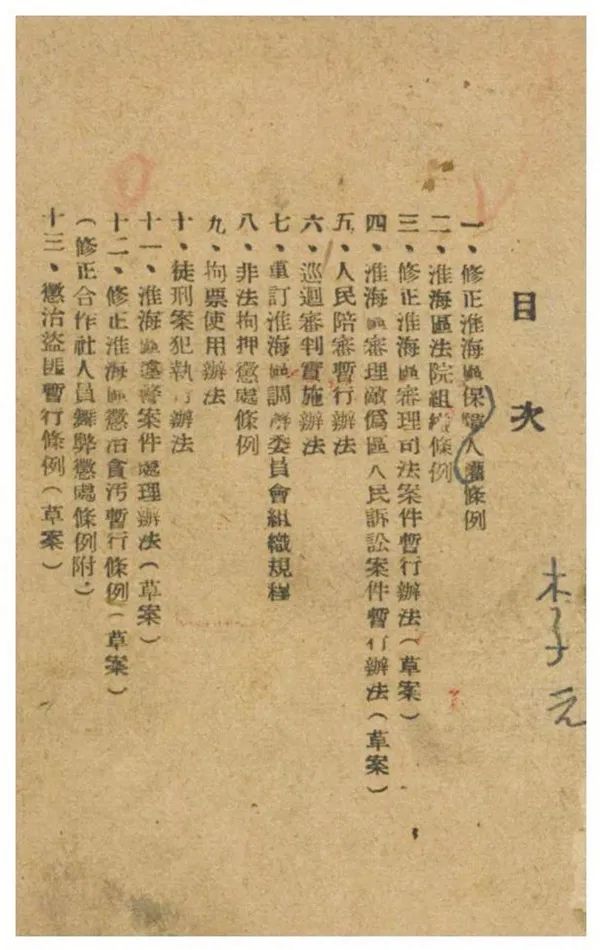 目次
一、修正淮海區保障人權條例
二、淮海區法院組織條例
三、修正淮海區審理司法案件暫行辦法（草案）
四、淮海區審理敵僞區人民訴訟案件暫行辦法（草案）
五、人民陪審暫行辦法
六、巡迴審判實施辦法
七、重訂淮海區調解委員會組織規程
八、非法拘押懲處條例
九、拘票使用辦法
十、徒刑案犯執行辦法
十一、淮海區違警案件處理辦法（草案）
十二、修正淮海區懲治貪汚暫行條例（草案）
（修正合作社人員舞弊懲處條例附.）
十三、懲治盜匪暫行條例（草案）
李元